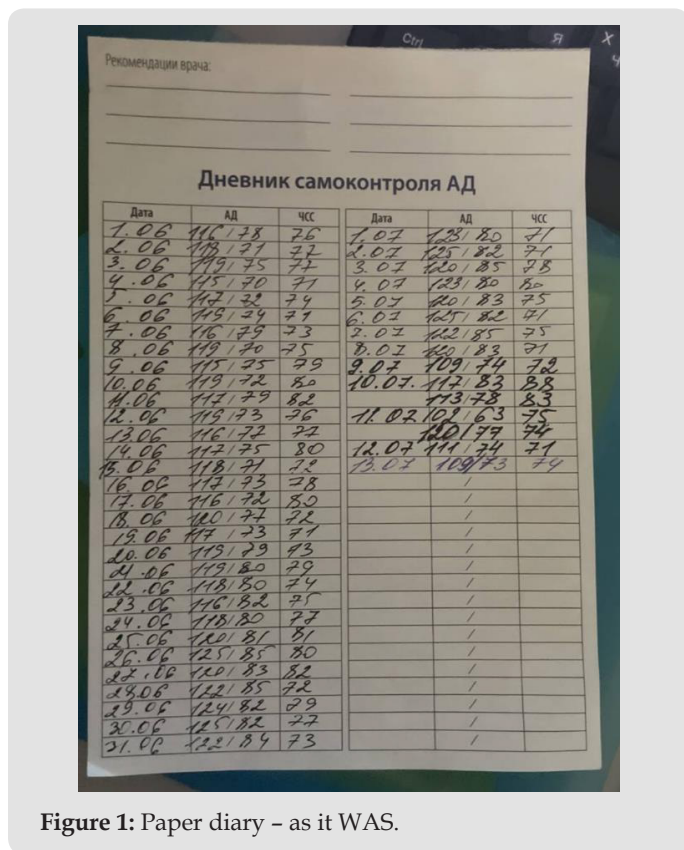 Ctrl Я X
Ч
Рекомендации врача:
Дневник самоконтроля АД
Дата АД ЧСС
1.06 116/78 76
2.06 118/71 77
3.06 119/75 77
4.06 115/70 71
5.06 117/72 74
6.06 119/74 71
7.06 116/79 73
8.06 119/70 75
9.06 115/75 79
10.06 119/72 80
11.06 117/79 82
12.06 119/73 76
13.06 116/77 77
14.06 117/75 80
15.06 118/71 72
16.06 117/73 78
17.06 116/72 80
18.06 120/77 72
19.06 117/73 71
20.06 119/79 73
21.06 119/80 79
22.06 118/80 74
23.06 116/82 75
24.06 118/80 77
25.06 120/81 81
26.06 125/85 80
27.06 120/83 82
28.06 122/85 72
29.06 124/82 79
30.06 125/82 77
31.06 122/84 73
Дата АД ЧСС
1.07 123/80 71
2.07 125/82 71
3.07 120/85 78
4.07 123/80 80
5.07 120/83 75
6.07 125/82 71
7.07 122/85 75
8.07 120/83 71
9.07 109/74 72
10.07. 117/83 88
113/78 83
11.07 75
120/77 74
12.07 111/74 71
13.07 109/73 74
/
/
/
/
/
/
/
/
/
/
/
/
/
/
/
/
Figure 1: Paper diary – as it WAS.